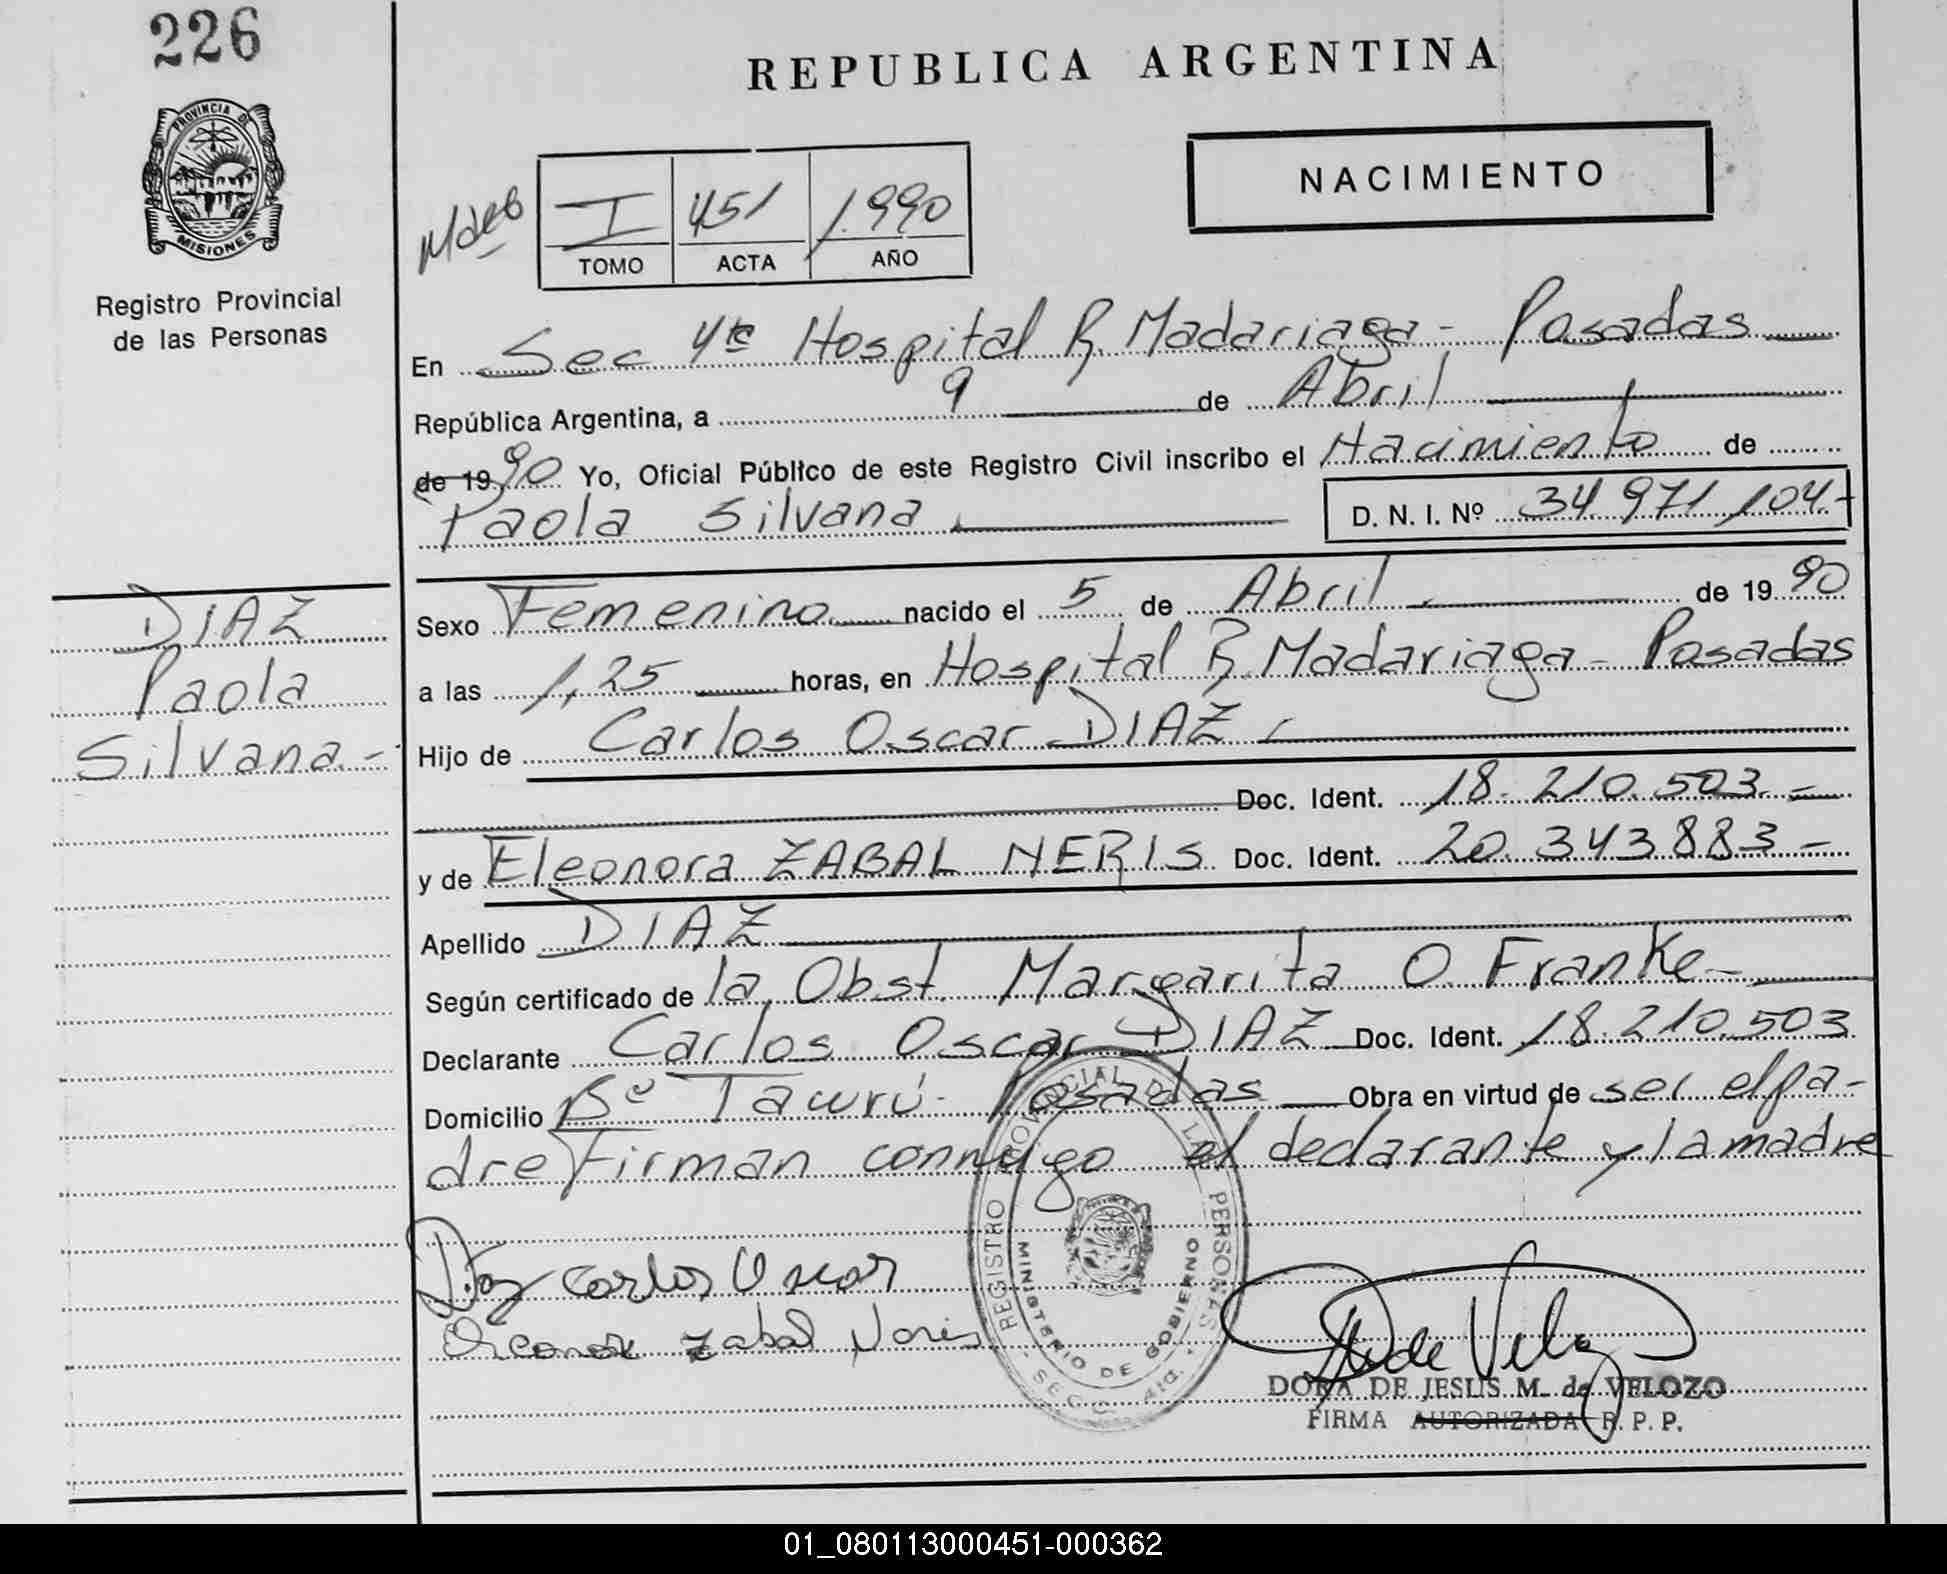 226
REPUBLICA ARGENTINA
NACIMIENTO
PROVINCIA DE
MISIONES
Registro Provincial
de las Personas
I 451 1.990
TOMO ACTA AÑO
En Sec 4ta Hospital R. Madariaga - Posadas
República Argentina, a 9 de Abril
de 1990 Yo, Oficial Público de este Registro Civil inscribo el Nacimiento de
Paola Silvana D. N. I. Nº 34 971 104.-
DIAZ
Paola
Silvana.-
Sexo Femenino nacido el 5 de Abril de 1990
a las 1,25 horas, en Hospital R. Madariaga - Posadas
Hijo de Carlos Oscar DIAZ
Doc. Ident. 18.210.503.-
y de Eleonora ZABAL NERIS Doc. Ident. 20.343.883-
Apellido DIAZ
Según certificado de la Obst. Margarita O. Franke-
Declarante Carlos Oscar DIAZ Doc. Ident. 18.210.503
Domicilio Bº Tacurú - Posadas Obra en virtud de ser el pa-
dre Firman conmigo el declarante y la madre
REGISTRO PROVINCIAL DE LAS PERSONAS
MINISTERIO DE GOBIERNO
Diaz Carlos Oscar
Eleonora Zabal Neris
DORA DE JESUS M. de VELOZO
FIRMA AUTORIZADA R. P. P.
01_080113000451-000362